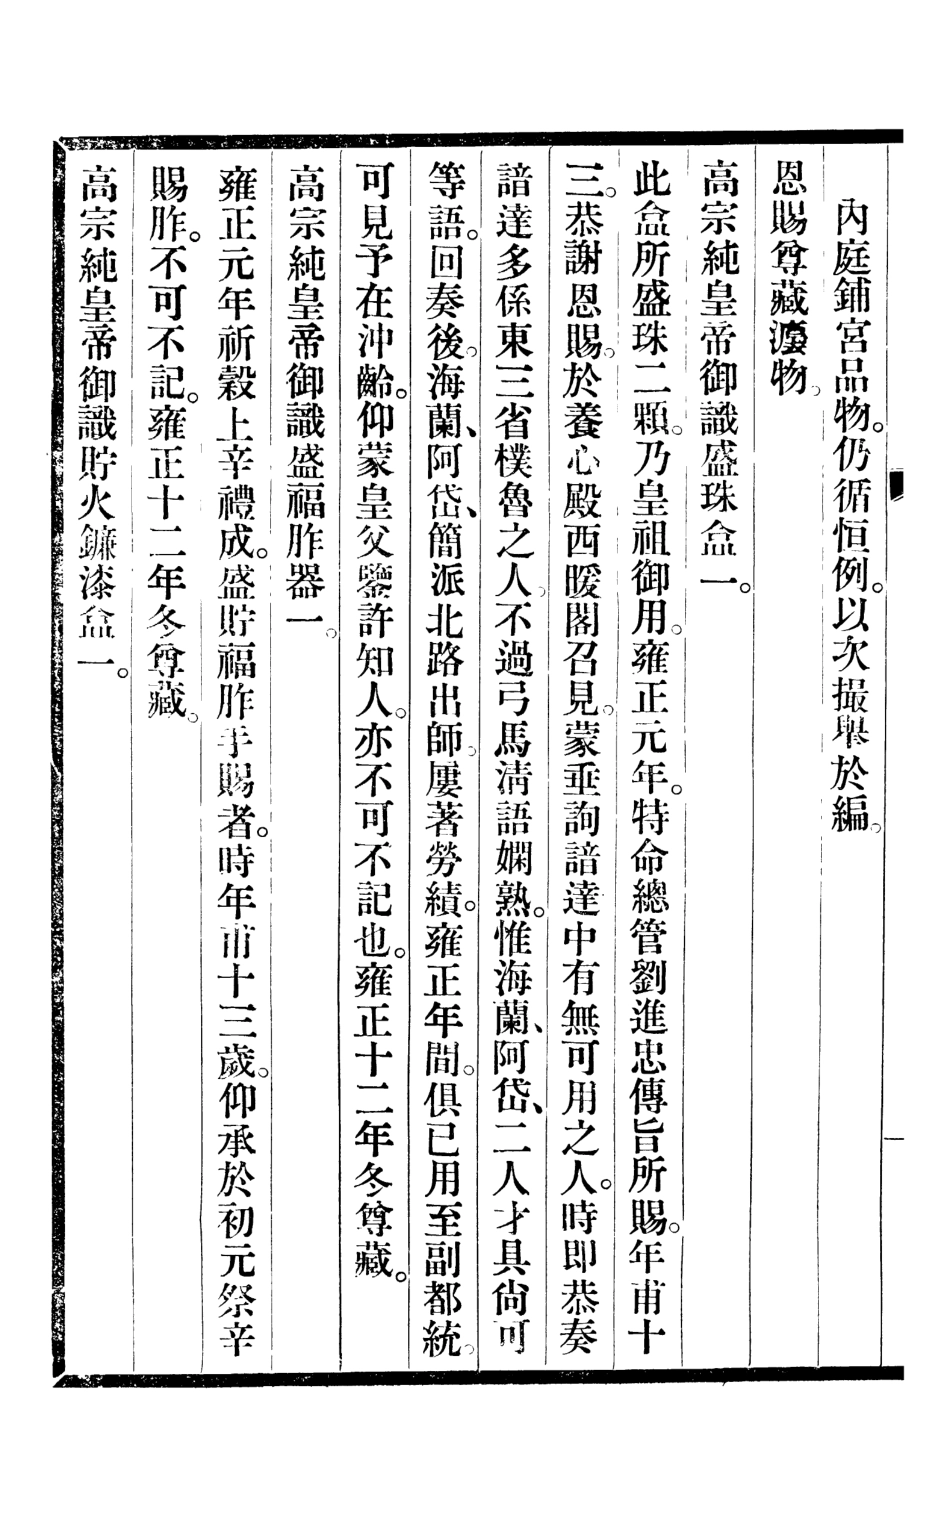 內庭鋪宮品物。仍循恒例。以次撮舉於編。
恩賜尊藏瀀物。
高宗純皇帝御識盛珠盒一。
此盒所盛珠二顆。乃皇祖御用。雍正元年。特命總管劉進忠傳旨所賜。年甫十
三。恭謝恩賜。於養心殿西暖閣召見。蒙垂詢諳達中有無可用之人。時即恭奏
諳達多係東三省樸魯之人。不過弓馬清語嫻熟。惟海蘭、阿岱、二人才具尙可
等語。回奏後。海蘭、阿岱、簡派北路出師。屢著勞績。雍正年間。俱已用至副都統。
可見予在沖齡。仰蒙皇父鑒許知人。亦不可不記也。雍正十二年冬尊藏。
高宗純皇帝御識盛福胙器一。
雍正元年祈穀上辛禮成。盛貯福胙手賜者。時年甫十三歲。仰承於初元祭辛
賜胙。不可不記。雍正十二年冬尊藏。
高宗純皇帝御識貯火鐮漆盒一。